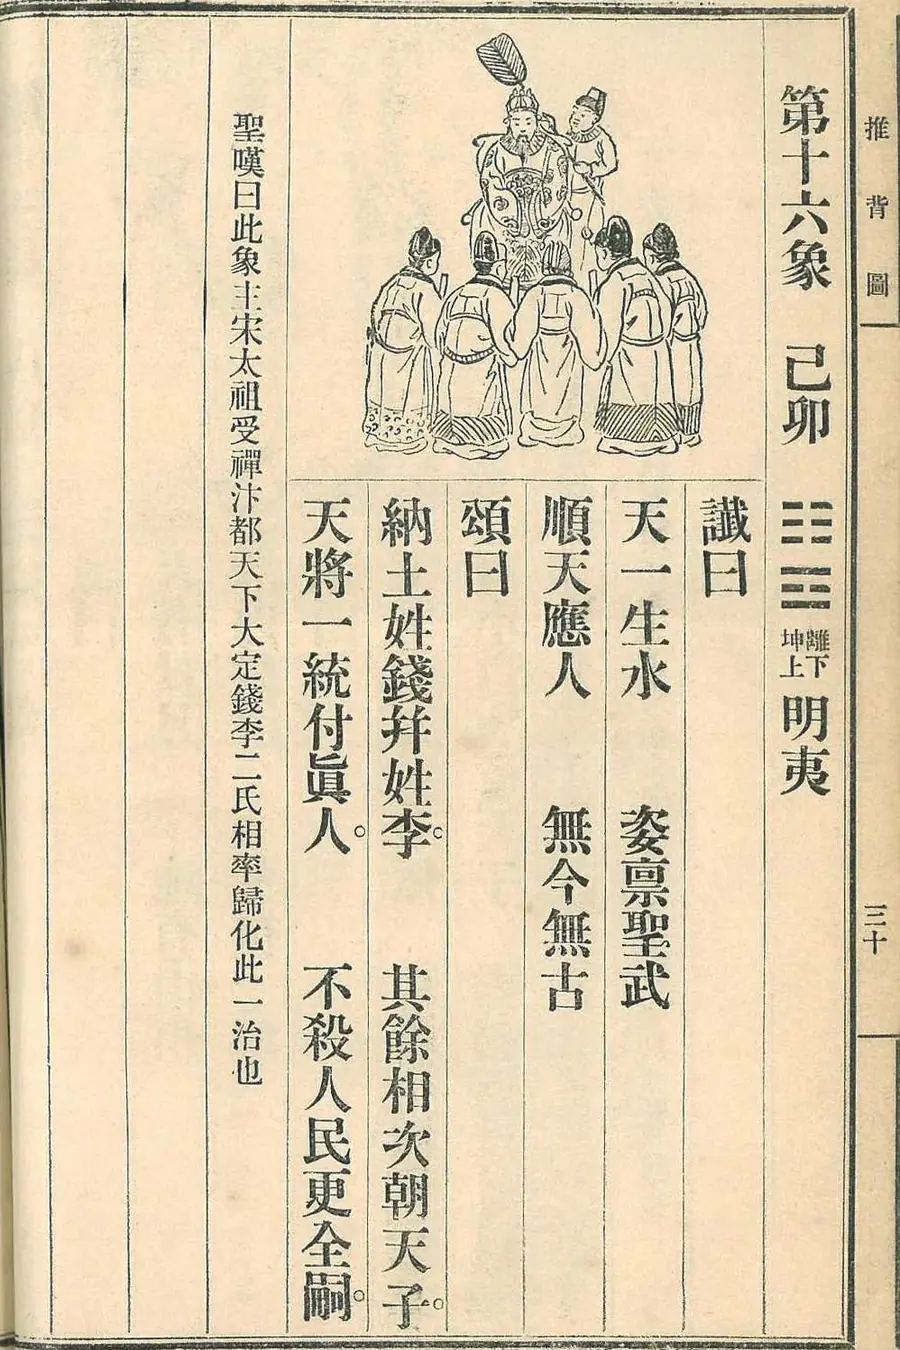 推背圖
三十
第十六象 己卯 ䷣ 離下坤上 明夷
讖曰
天一生水 姿禀聖武
順天應人 無今無古
頌曰
納土姓錢幷姓李。 其餘相次朝天子。
天將一統付眞人。 不殺人民更全嗣。
聖嘆曰此象主宋太祖受禪汴都天下大定錢李二氏相率歸化此一治也